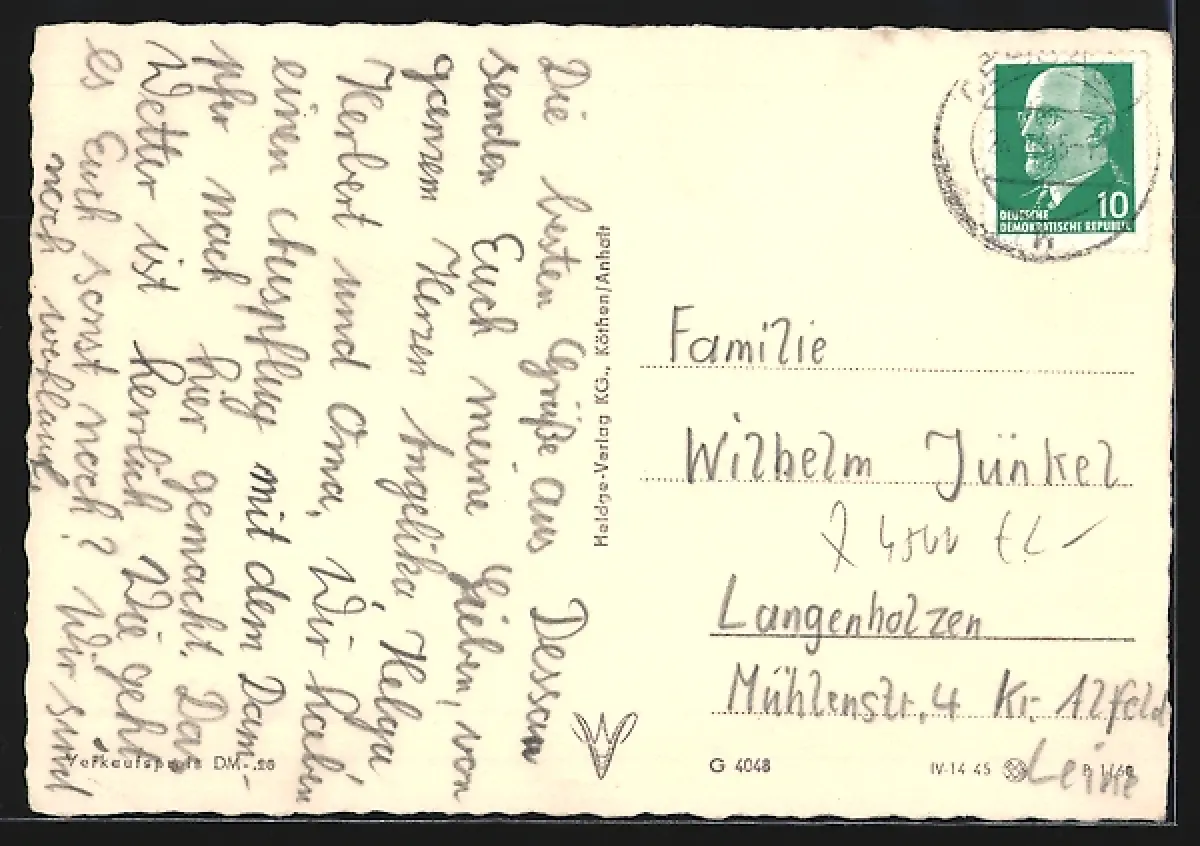 Die besten Grüße aus Dessau
senden Euch meine Lieben, von
ganzem Herzen Angelika, Helga
Herbert und Oma, Wir haben
einen Ausflug mit dem Dam-
pfer nach hier gemacht. Das
Wetter ist herrlich Wie geht
es Euch sonst noch? Wir sind
noch wohlauf.
Verkaufspreis DM -.20
Heldge-Verlag KG., Köthen/Anhalt
DEUTSCHE
DEMOKRATISCHE REPUBLIK
10
Familie
Wilhelm Jünkel
Langenholzen
Mühlenstr. 4 Kr. Alfeld
Leine
G 4048
IV-14-45